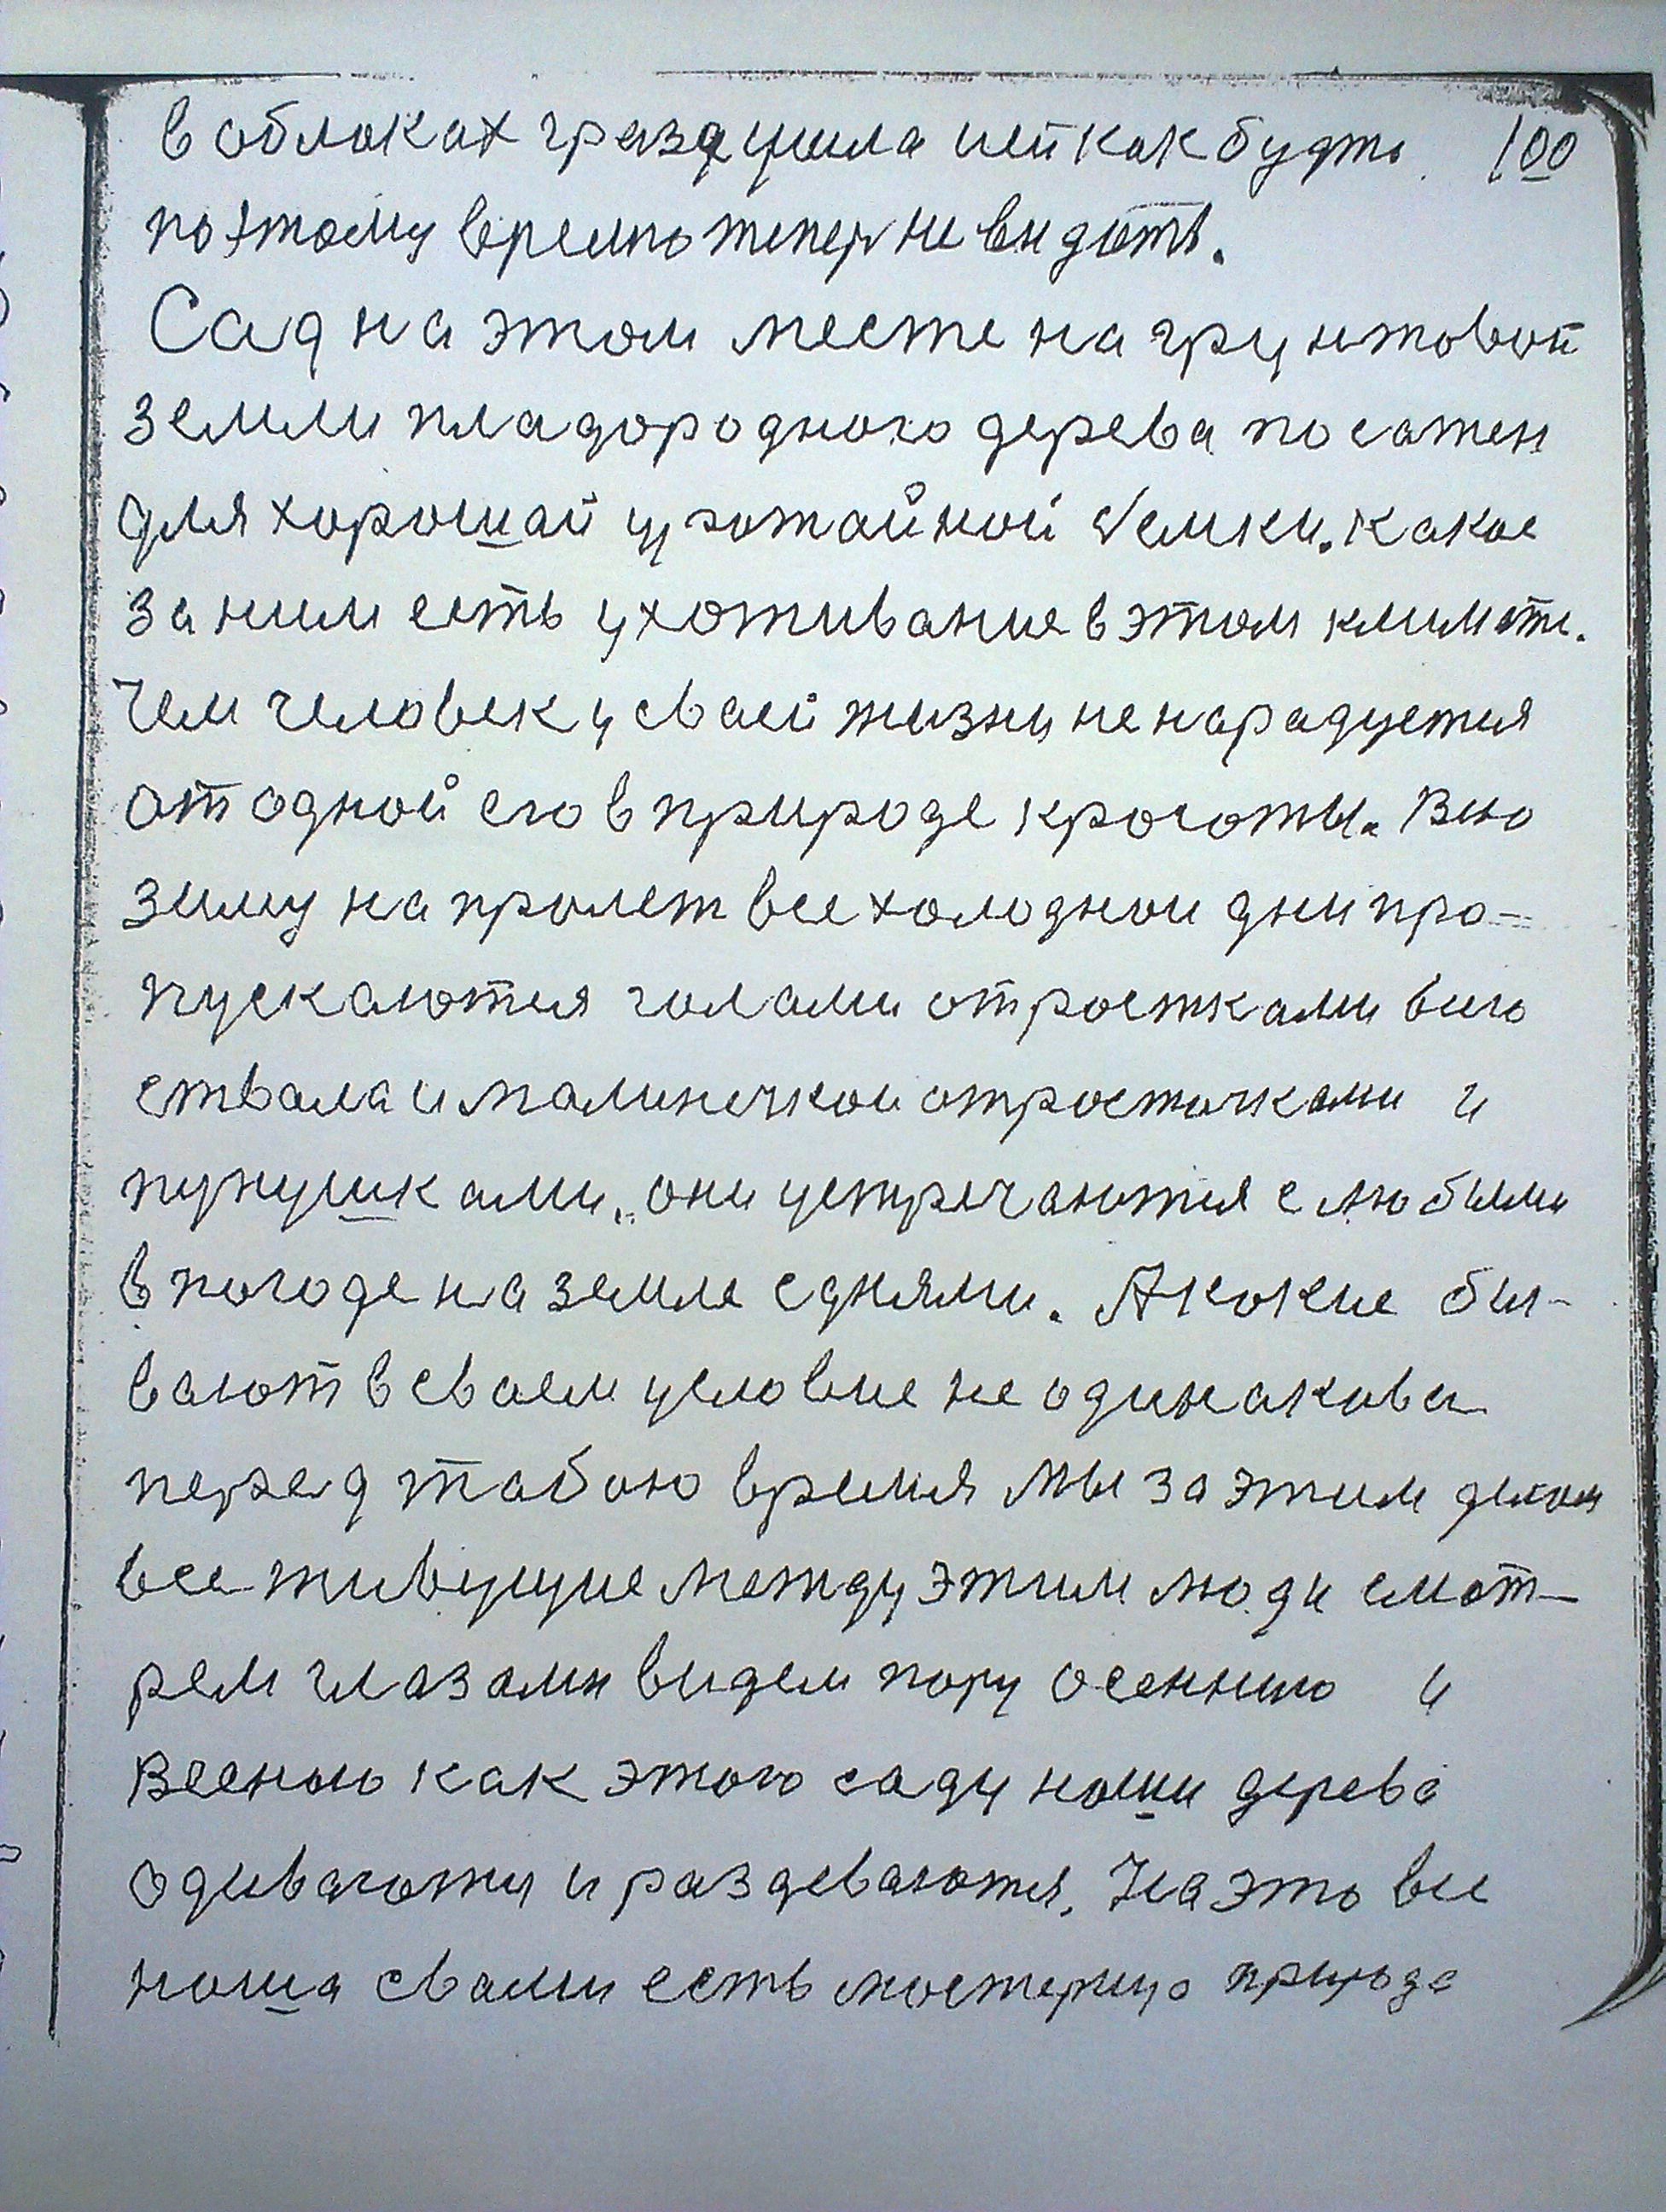 в облаках гроза ушла ией как будто 100
поэтому время теперь не видать.
Сад на этом месте на грунтовой
земли пладородного дерева посатен
для хорошай урожайной семки. какое
за ним есть ухоживание в этом климате.
Чем человек у сваей жизни не нарадуется
от одной его в природе красоты. Всю
зиму на пролет все холоднои дни про-
пускаются голами отростками в его
ствала и малинечкои отросточками и
пупушками, они устречаются с любыми
в погоде на земле с днями. А какие бы-
вают в сваем условие не одинаковы
перед табою время мы за этим делом
все живущие между этим люди смот-
рем глазами видем пору осеннию и
Весною как этого саду наши дерева
одиваются и раздеваются, На это все
наша свами есть мостерицо природа